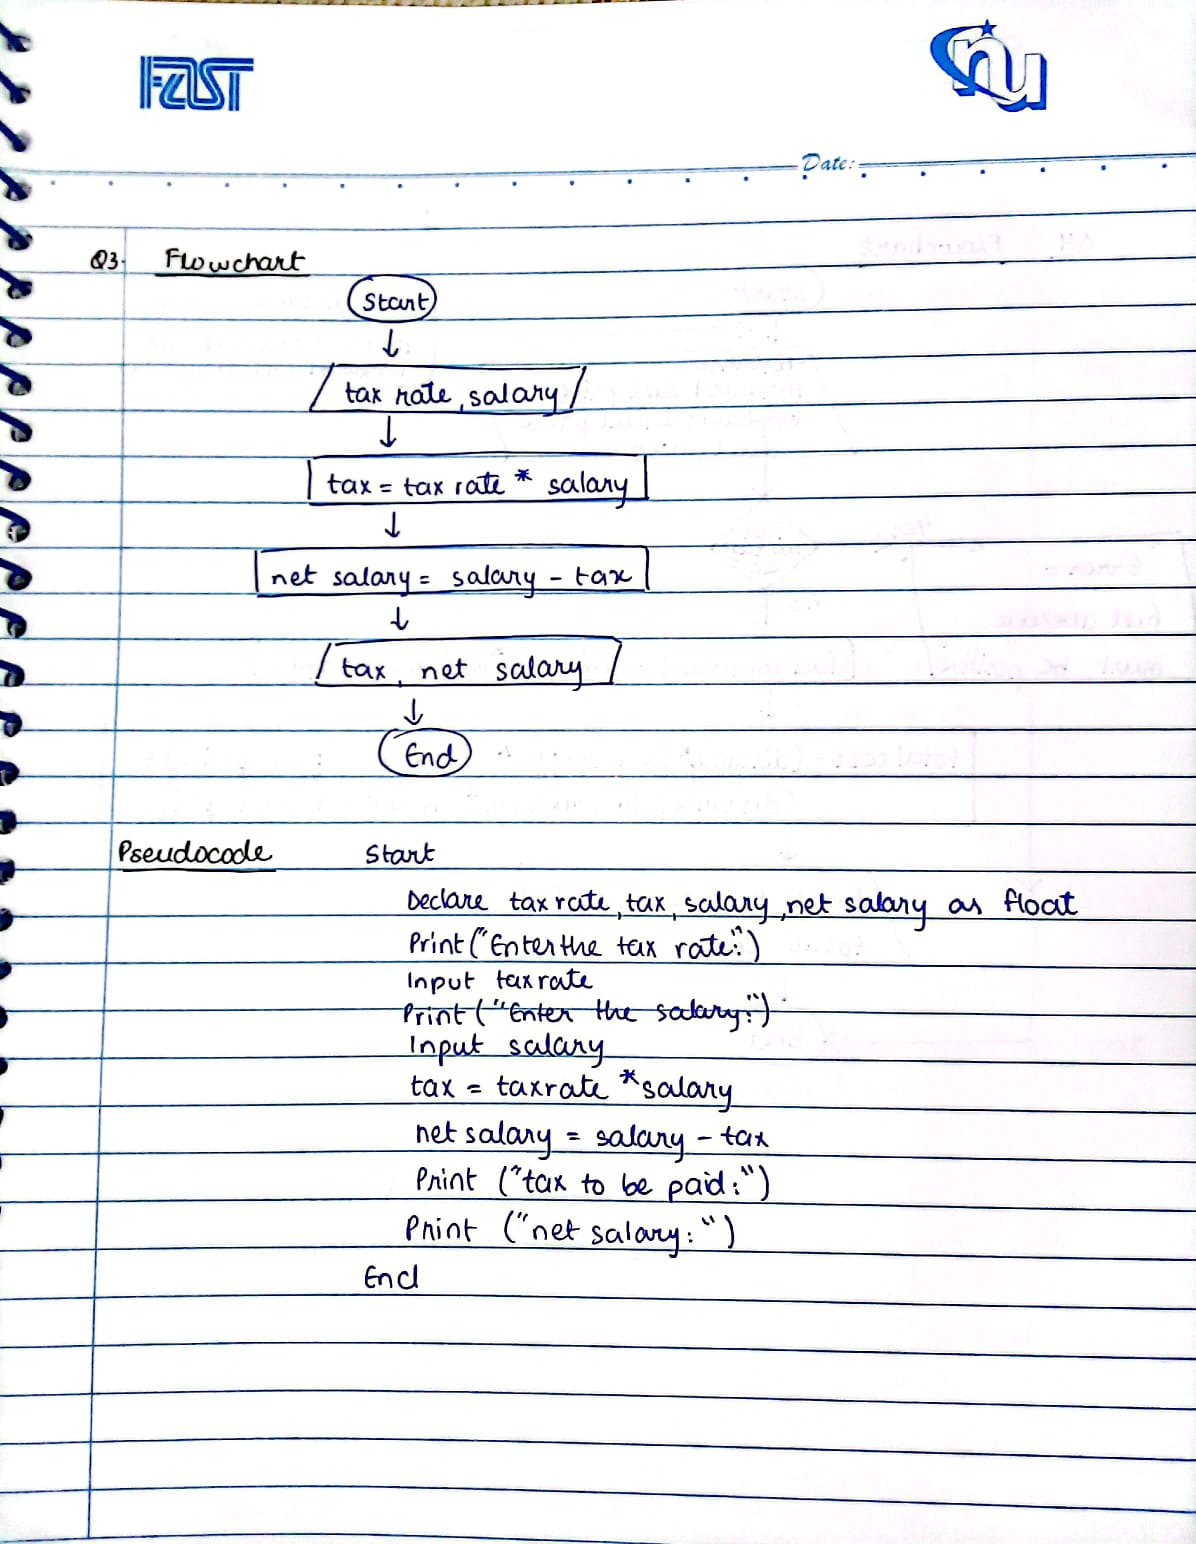 FAST
nu
Date:
Q3- Flowchart
Start
tax rate, salary
tax = tax rate * salary
net salary = salary - tax
tax, net salary
End
Pseudocode Start
Declare tax rate, tax, salary, net salary as float
Print("Enter the tax rate:")
Input taxrate
Print("Enter the salary:")
Input salary
tax = taxrate * salary
net salary = salary - tax
Print ("tax to be paid:")
Print ("net salary:")
End